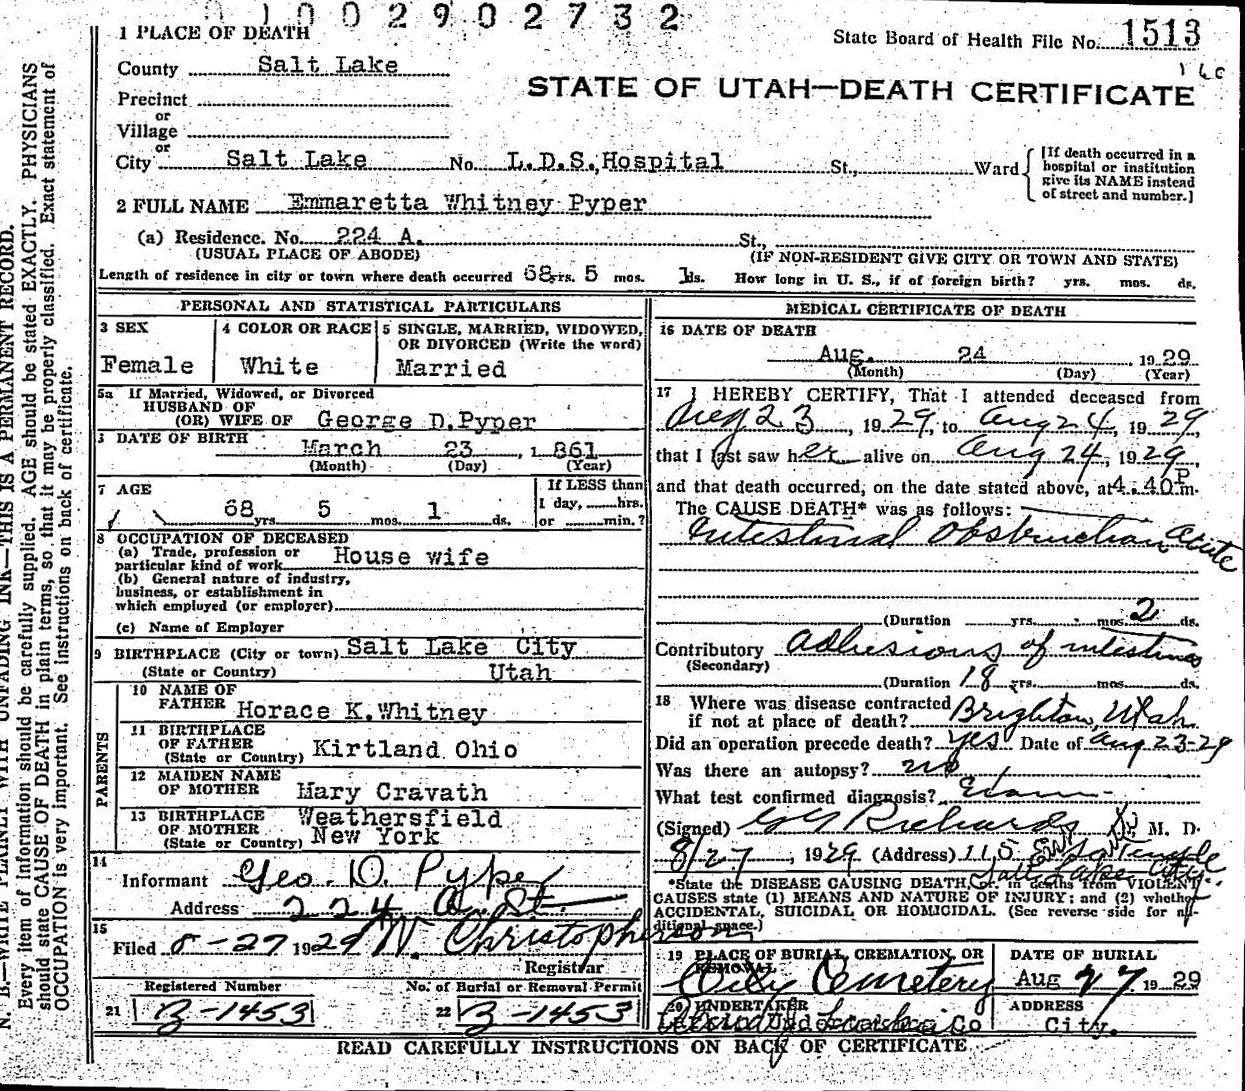 1002902732
1 PLACE OF DEATH
State Board of Health File No. 1513
160
County Salt Lake
STATE OF UTAH—DEATH CERTIFICATE
Precinct
or
Village
or
City Salt Lake No. L.D.S. Hospital St., Ward
[If death occurred in a
hospital or institution
give its NAME instead
of street and number.]
2 FULL NAME Emmaretta Whitney Pyper
(a) Residence. No. 224 A. St.,
(USUAL PLACE OF ABODE) (IF NON-RESIDENT GIVE CITY OR TOWN AND STATE)
Length of residence in city or town where death occurred 68 yrs. 5 mos. 1 ds. How long in U. S., if of foreign birth? yrs. mos. ds.
PERSONAL AND STATISTICAL PARTICULARS
3 SEX
Female
4 COLOR OR RACE
White
5 SINGLE, MARRIED, WIDOWED,
OR DIVORCED (Write the word)
Married
5a If Married, Widowed, or Divorced
HUSBAND OF
(OR) WIFE OF George D. Pyper
DATE OF BIRTH
March 23, 1861
(Month) (Day) (Year)
7 AGE
68 yrs. 5 mos. 1 ds.
If LESS than
1 day, hrs.
or min.?
8 OCCUPATION OF DECEASED
(a) Trade, profession or
particular kind of work House wife
(b) General nature of industry,
business, or establishment in
which employed (or employer)
(c) Name of Employer
9 BIRTHPLACE (City or town) Salt Lake City
(State or Country) Utah
PARENTS
10 NAME OF
FATHER Horace K. Whitney
11 BIRTHPLACE
OF FATHER
(State or Country) Kirtland Ohio
12 MAIDEN NAME
OF MOTHER Mary Cravath
13 BIRTHPLACE
OF MOTHER
(State or Country) Weathersfield
New York
14
Informant Geo. D. Pyper
Address 224 A. St.
15
Filed 8-27 1929 W. Christopherson
Registrar
Registered Number
21 B-1453
No. of Burial or Removal Permit
22 B-1453
MEDICAL CERTIFICATE OF DEATH
16 DATE OF DEATH
Aug. 24 1929
(Month) (Day) (Year)
17 I HEREBY CERTIFY, That I attended deceased from
Aug 23, 1929, to Aug 24, 1929
that I last saw her alive on Aug 24, 1929,
and that death occurred, on the date stated above, at 4.40 P m.
The CAUSE DEATH* was as follows:
Intestinal Obstruction Acute
(Duration yrs. mos. 2 ds.
Contributory Adhesions of intestines
(Secondary)
(Duration 18 yrs. mos. ds.
18 Where was disease contracted
if not at place of death? Brighton, Utah
Did an operation precede death? yes Date of Aug 23-29
Was there an autopsy? no
What test confirmed diagnosis? Exam
(Signed) G G Richards Dr M. D.
8/27, 1929 (Address) 115 E So Temple
Salt Lake City
*State the DISEASE CAUSING DEATH, or in deaths from VIOLENT
CAUSES state (1) MEANS AND NATURE OF INJURY; and (2) whether
ACCIDENTAL, SUICIDAL OR HOMICIDAL. (See reverse side for ad-
ditional space.)
19 PLACE OF BURIAL, CREMATION, OR
REMOVAL
City Cemetery
DATE OF BURIAL
Aug 27 1929
20 UNDERTAKER
Co
ADDRESS
City.
READ CAREFULLY INSTRUCTIONS ON BACK OF CERTIFICATE
N. B.—WRITE PLAINLY WITH UNFADING INK—THIS IS A PERMANENT RECORD.
Every item of information should be carefully supplied. AGE should be stated EXACTLY. PHYSICIANS
should state CAUSE OF DEATH in plain terms, so that it may be properly classified. Exact statement of
OCCUPATION is very important. See instructions on back of certificate.